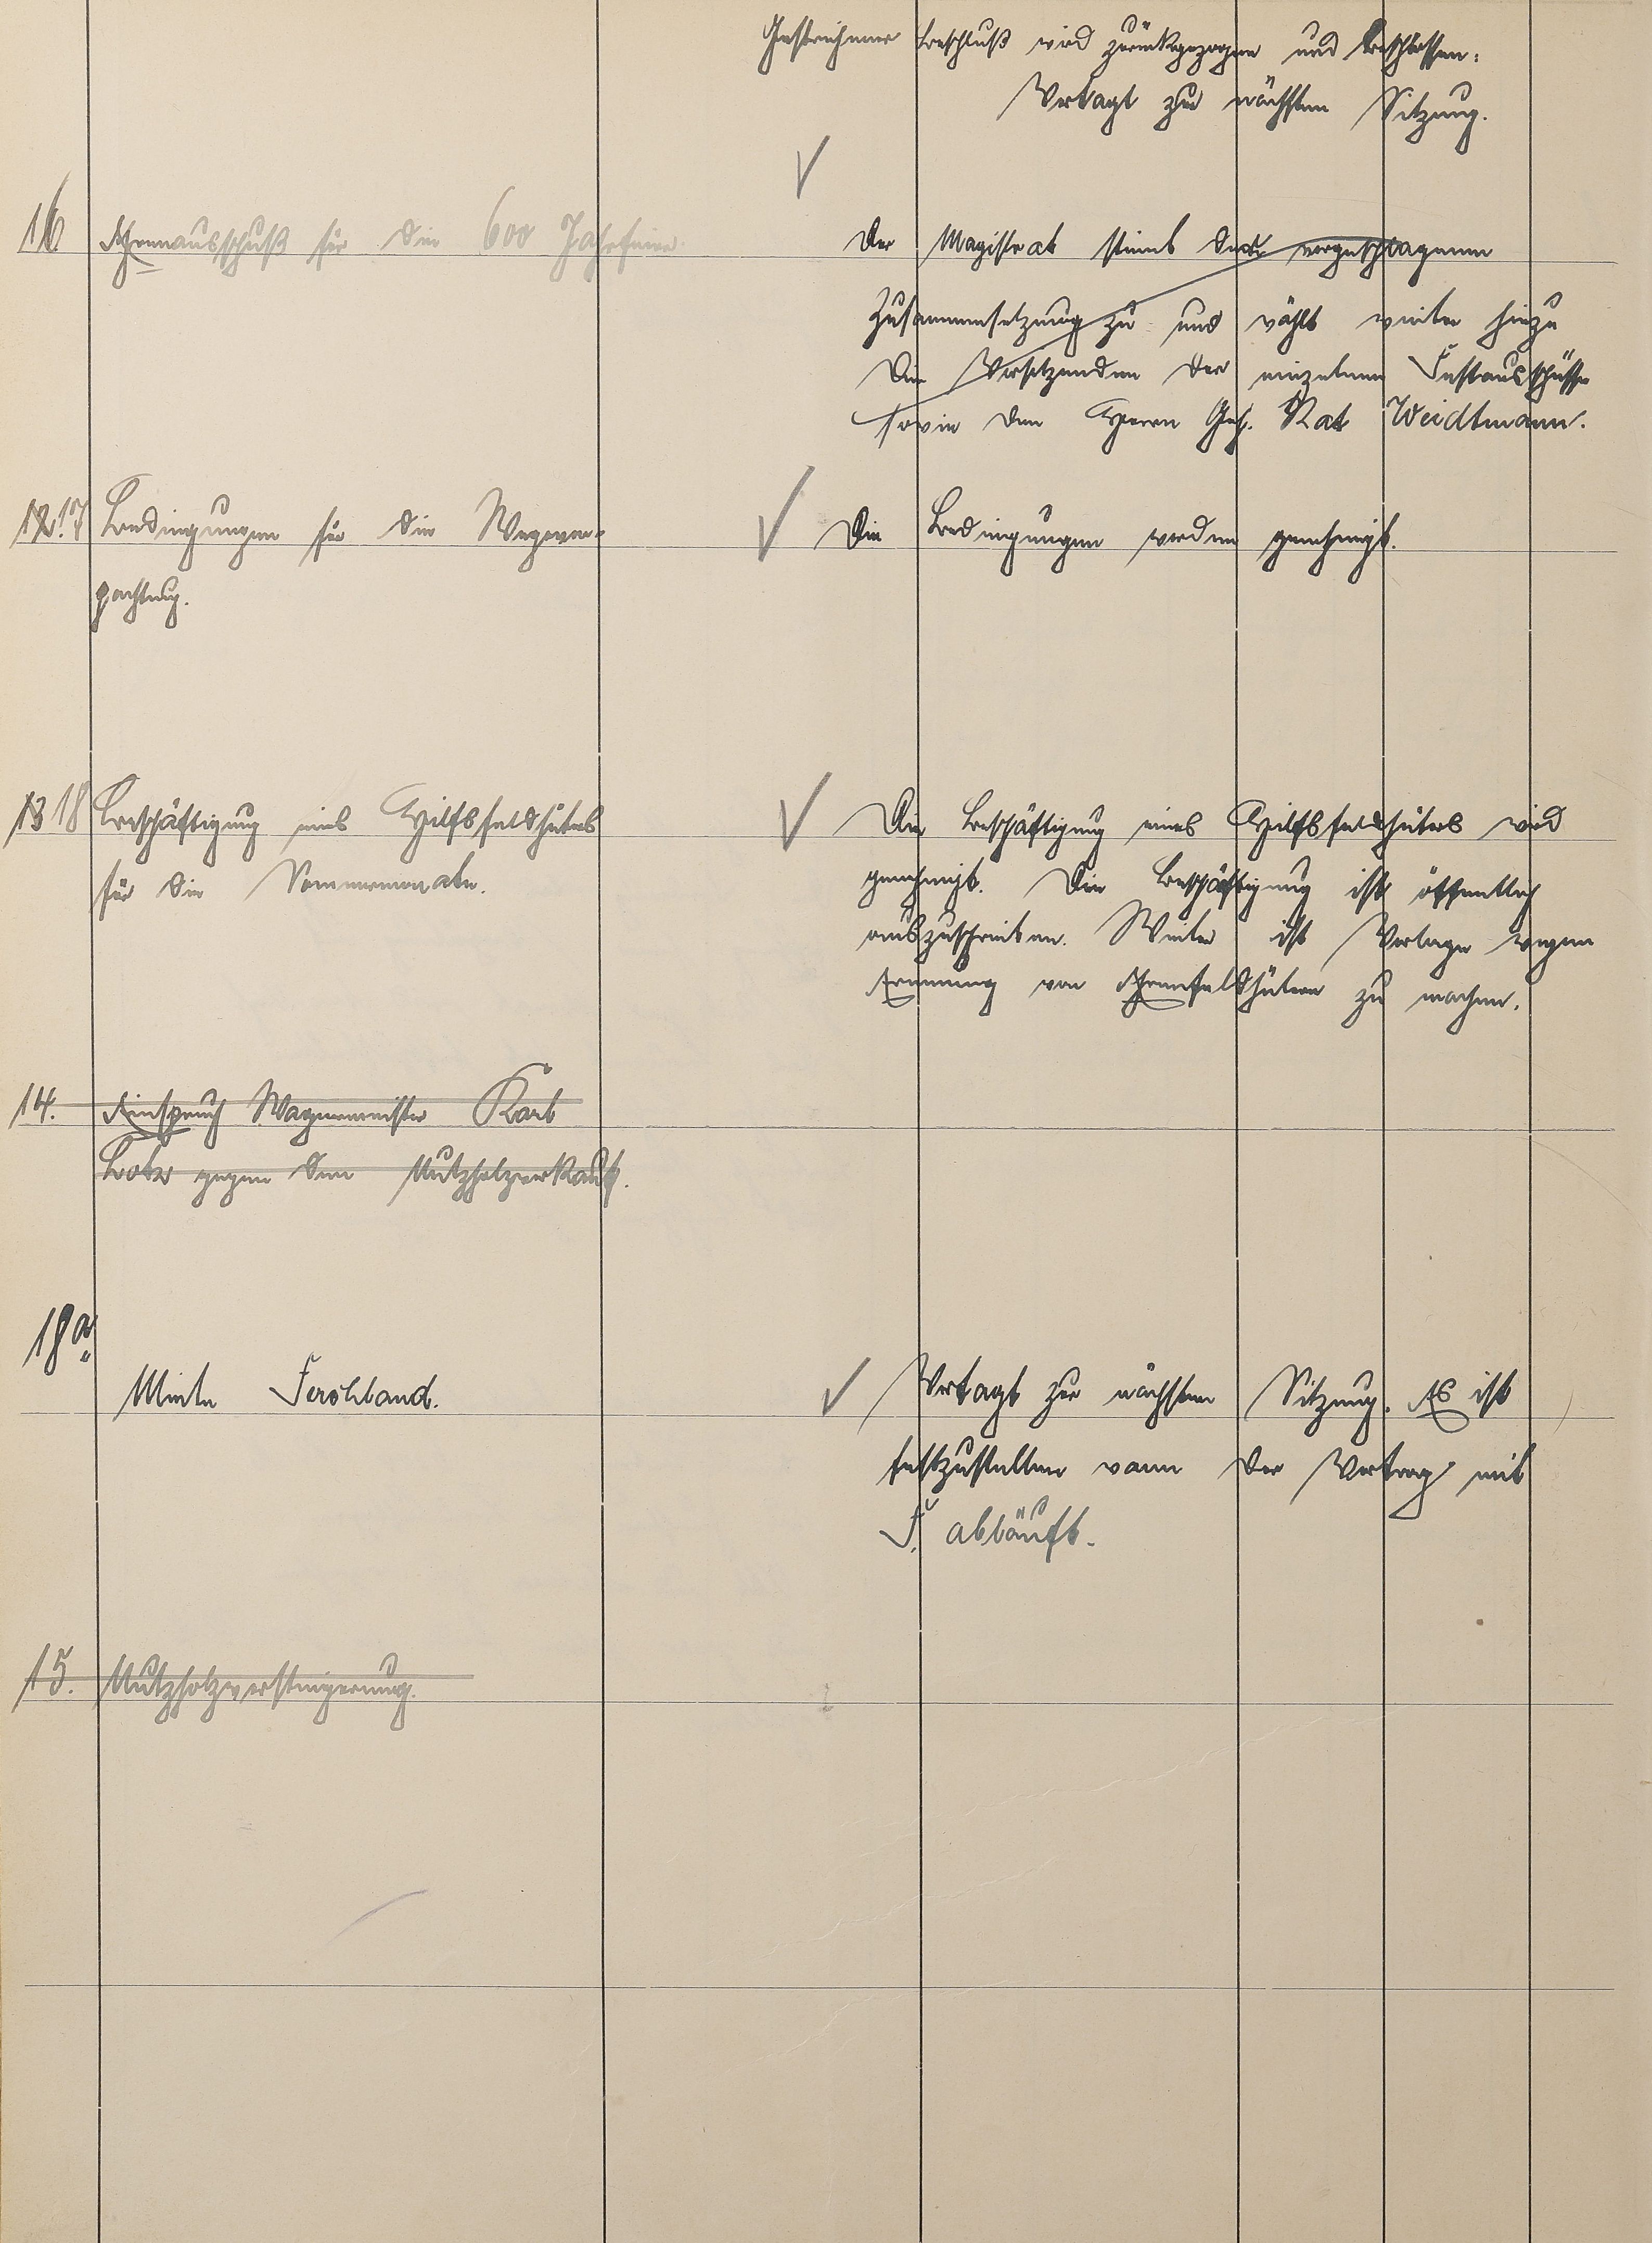 Gestrichener Beschluß wird zurückgezogen und beschlossen:
Vertagt zur nächsten Sitzung.
16 Ehrenausschuß für die 600 Jahrfeier.
Der Magistrat stimmt der vorgeschlagenen
Zusammensetzung zu und wählt weiter hinzu
die Vorsitzenden der einzelnen Festausschüsse
sowie den Herrn Geh. Rat Weidtmann.
12. 17 Bedingungen für die Wegever-
pachtung.
Die Bedingungen werden genehmigt.
13 18 Beschäftigung eines Hilfsfeldhüters
für die Sommermonate.
Die Beschäftigung eines Hilfsfeldhüters wird
genehmigt. Die Beschäftigung ist öffentlich
auszuschreiben. Weiter ist Vorlage wegen
Ernennung von Ehrenfeldhütern zu machen.
14. Einspruch Wagnermeister Karl
Lotz gegen den Nutzholzverkauf.
18a
Miete Ferchland.
Vertagt zur nächsten Sitzung. Es ist
festzustellen wann der Vertrag mit
F. abläuft.
15. Nutzholzversteigerung.